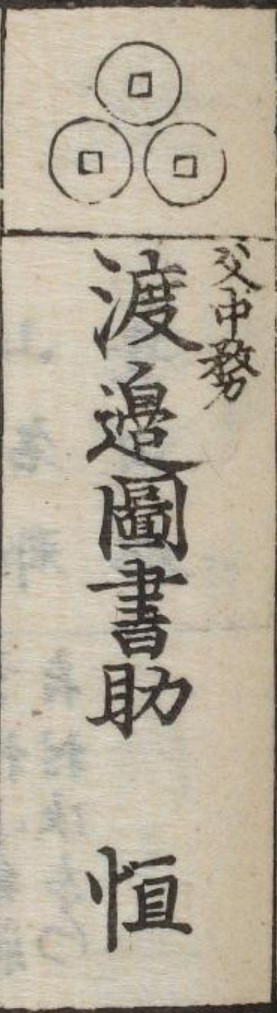 父中務
渡邉圖書助 恒